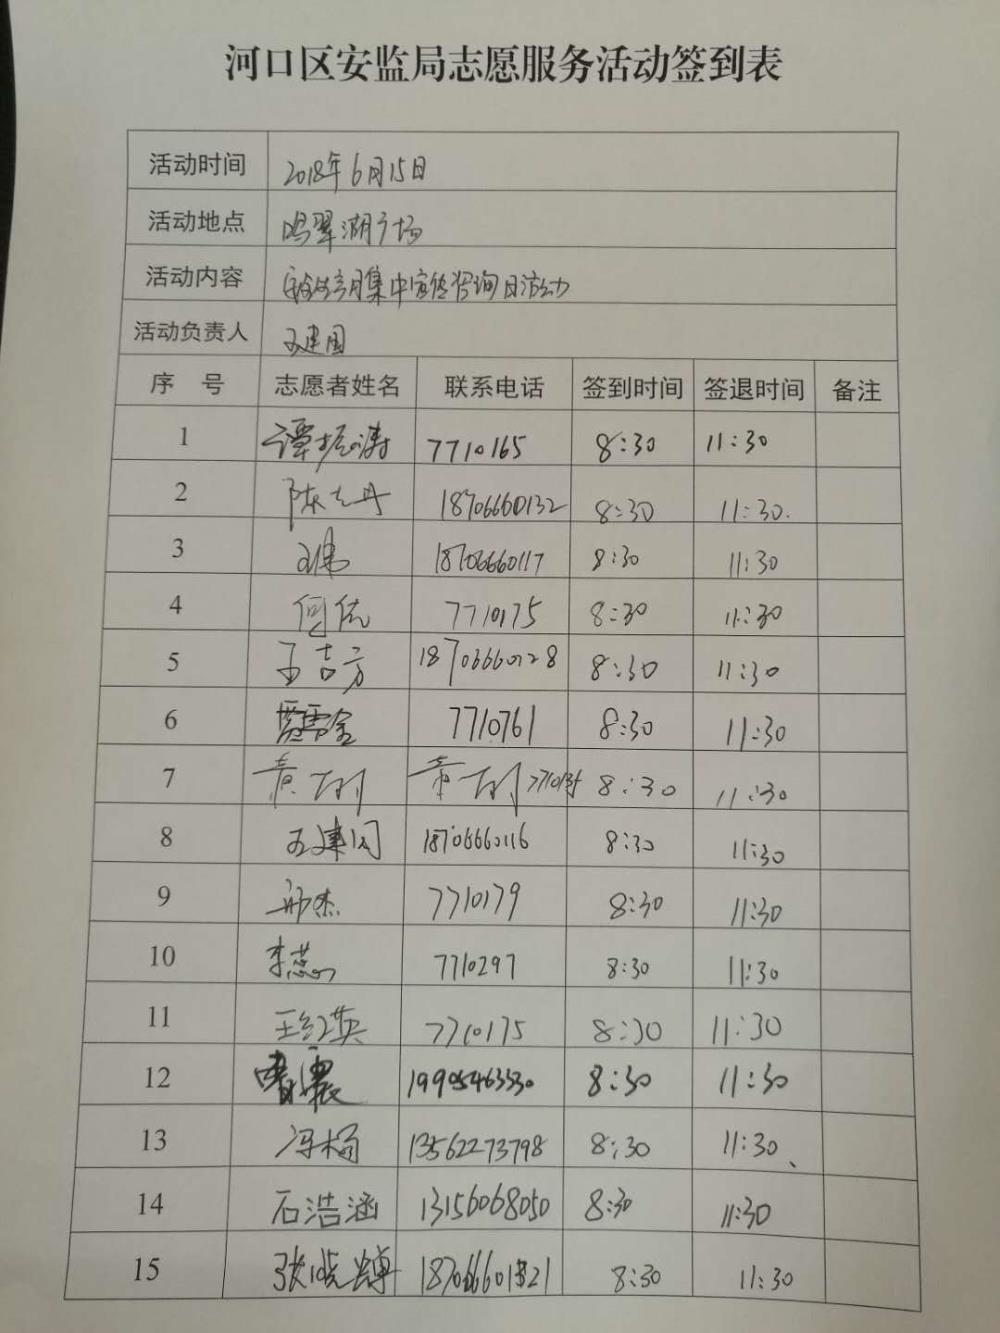 河口区安监局志愿服务活动签到表
活动时间 2018年6月15日
活动地点 鸣翠湖广场
活动内容 安全生产月集中宣传咨询日活动
活动负责人 王建国
序 号 志愿者姓名 联系电话 签到时间 签退时间 备注
1 谭振涛 7710165 8:30 11:30
2 陈志丹 18706660132 8:30 11:30.
3 王伟 18706660117 8:30 11:30
4 何依 7710175 8:30 11:30
5 王吉方 18706660128 8:30 11:30
6 7710761 8:30 11:30
7 8:30 11:30
8 王建国 18706660116 8:30 11:30
9 7710179 8:30 11:30
10 李蕊 7710297 8:30 11:30
11 王红英 7710175 8:30 11:30
12 19905463530 8:30 11:30
13 冯杨 13562273798 8:30 11:30、
14 石浩涵 13156068050 8:30 11:30
15 张晓 8:30 11:30